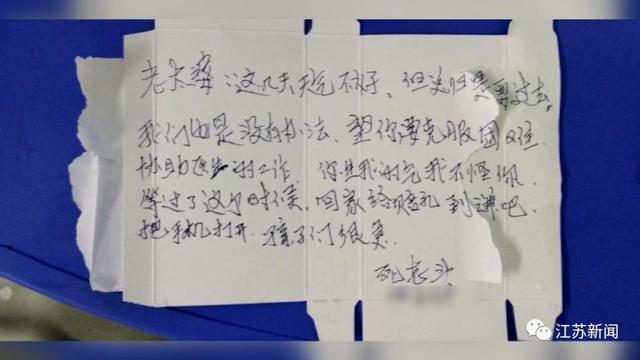 老太婆：这几天天气不好、但总归要过去。
我们也是没有办法、望你要克服困难
协助医生的工作、你出我洋完我不怪你、
等过了这个时候、回家给赔礼到谦吧、
把手机打开、孩子们很急
死老头
江苏新闻